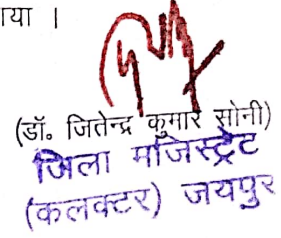 गया ।
(डॉ. जितेन्द्र कुमार सोनी)
जिला मजिस्ट्रेट
(कलक्टर) जयपुर